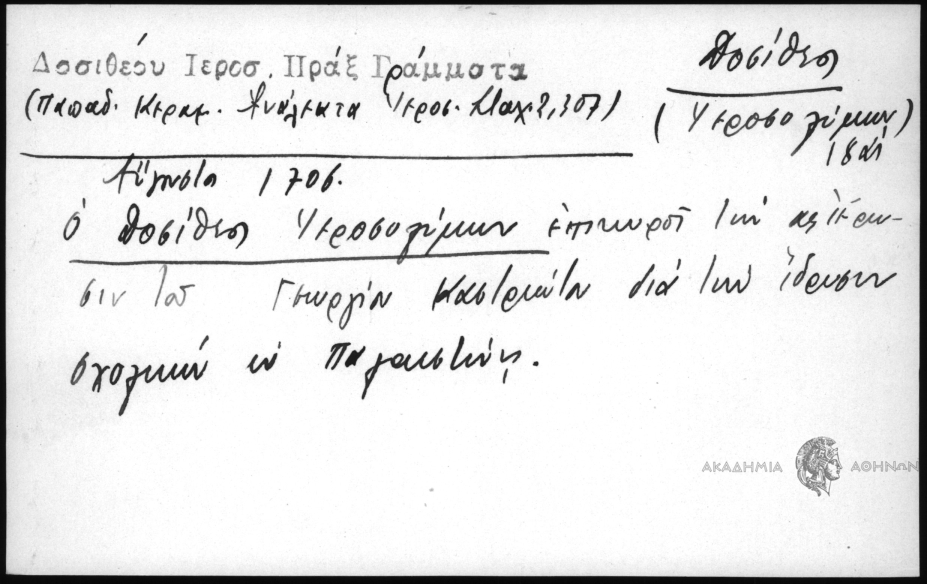 Δοσιθέου Ιεροσ. Πράξ Γράμματα
(Παπαδ. Κεραμ. Ἀνάλεκτα Ἱεροσ. Σταχ. 2, 307)
Δοσίθεος
(Ἱεροσολύμων)
Αὔγουστος 1706.
Ὁ Δοσίθεος Ἱεροσολύμων ἐπικυροῖ τὴν
σιν τοῦ Γεωργίου Καστριώτου διὰ τὴν ἵδρυσιν
σχολικῶν ἐν Παλαιστίνῃ.
ΑΚΑΔΗΜΙΑ ΑΘΗΝΩΝ